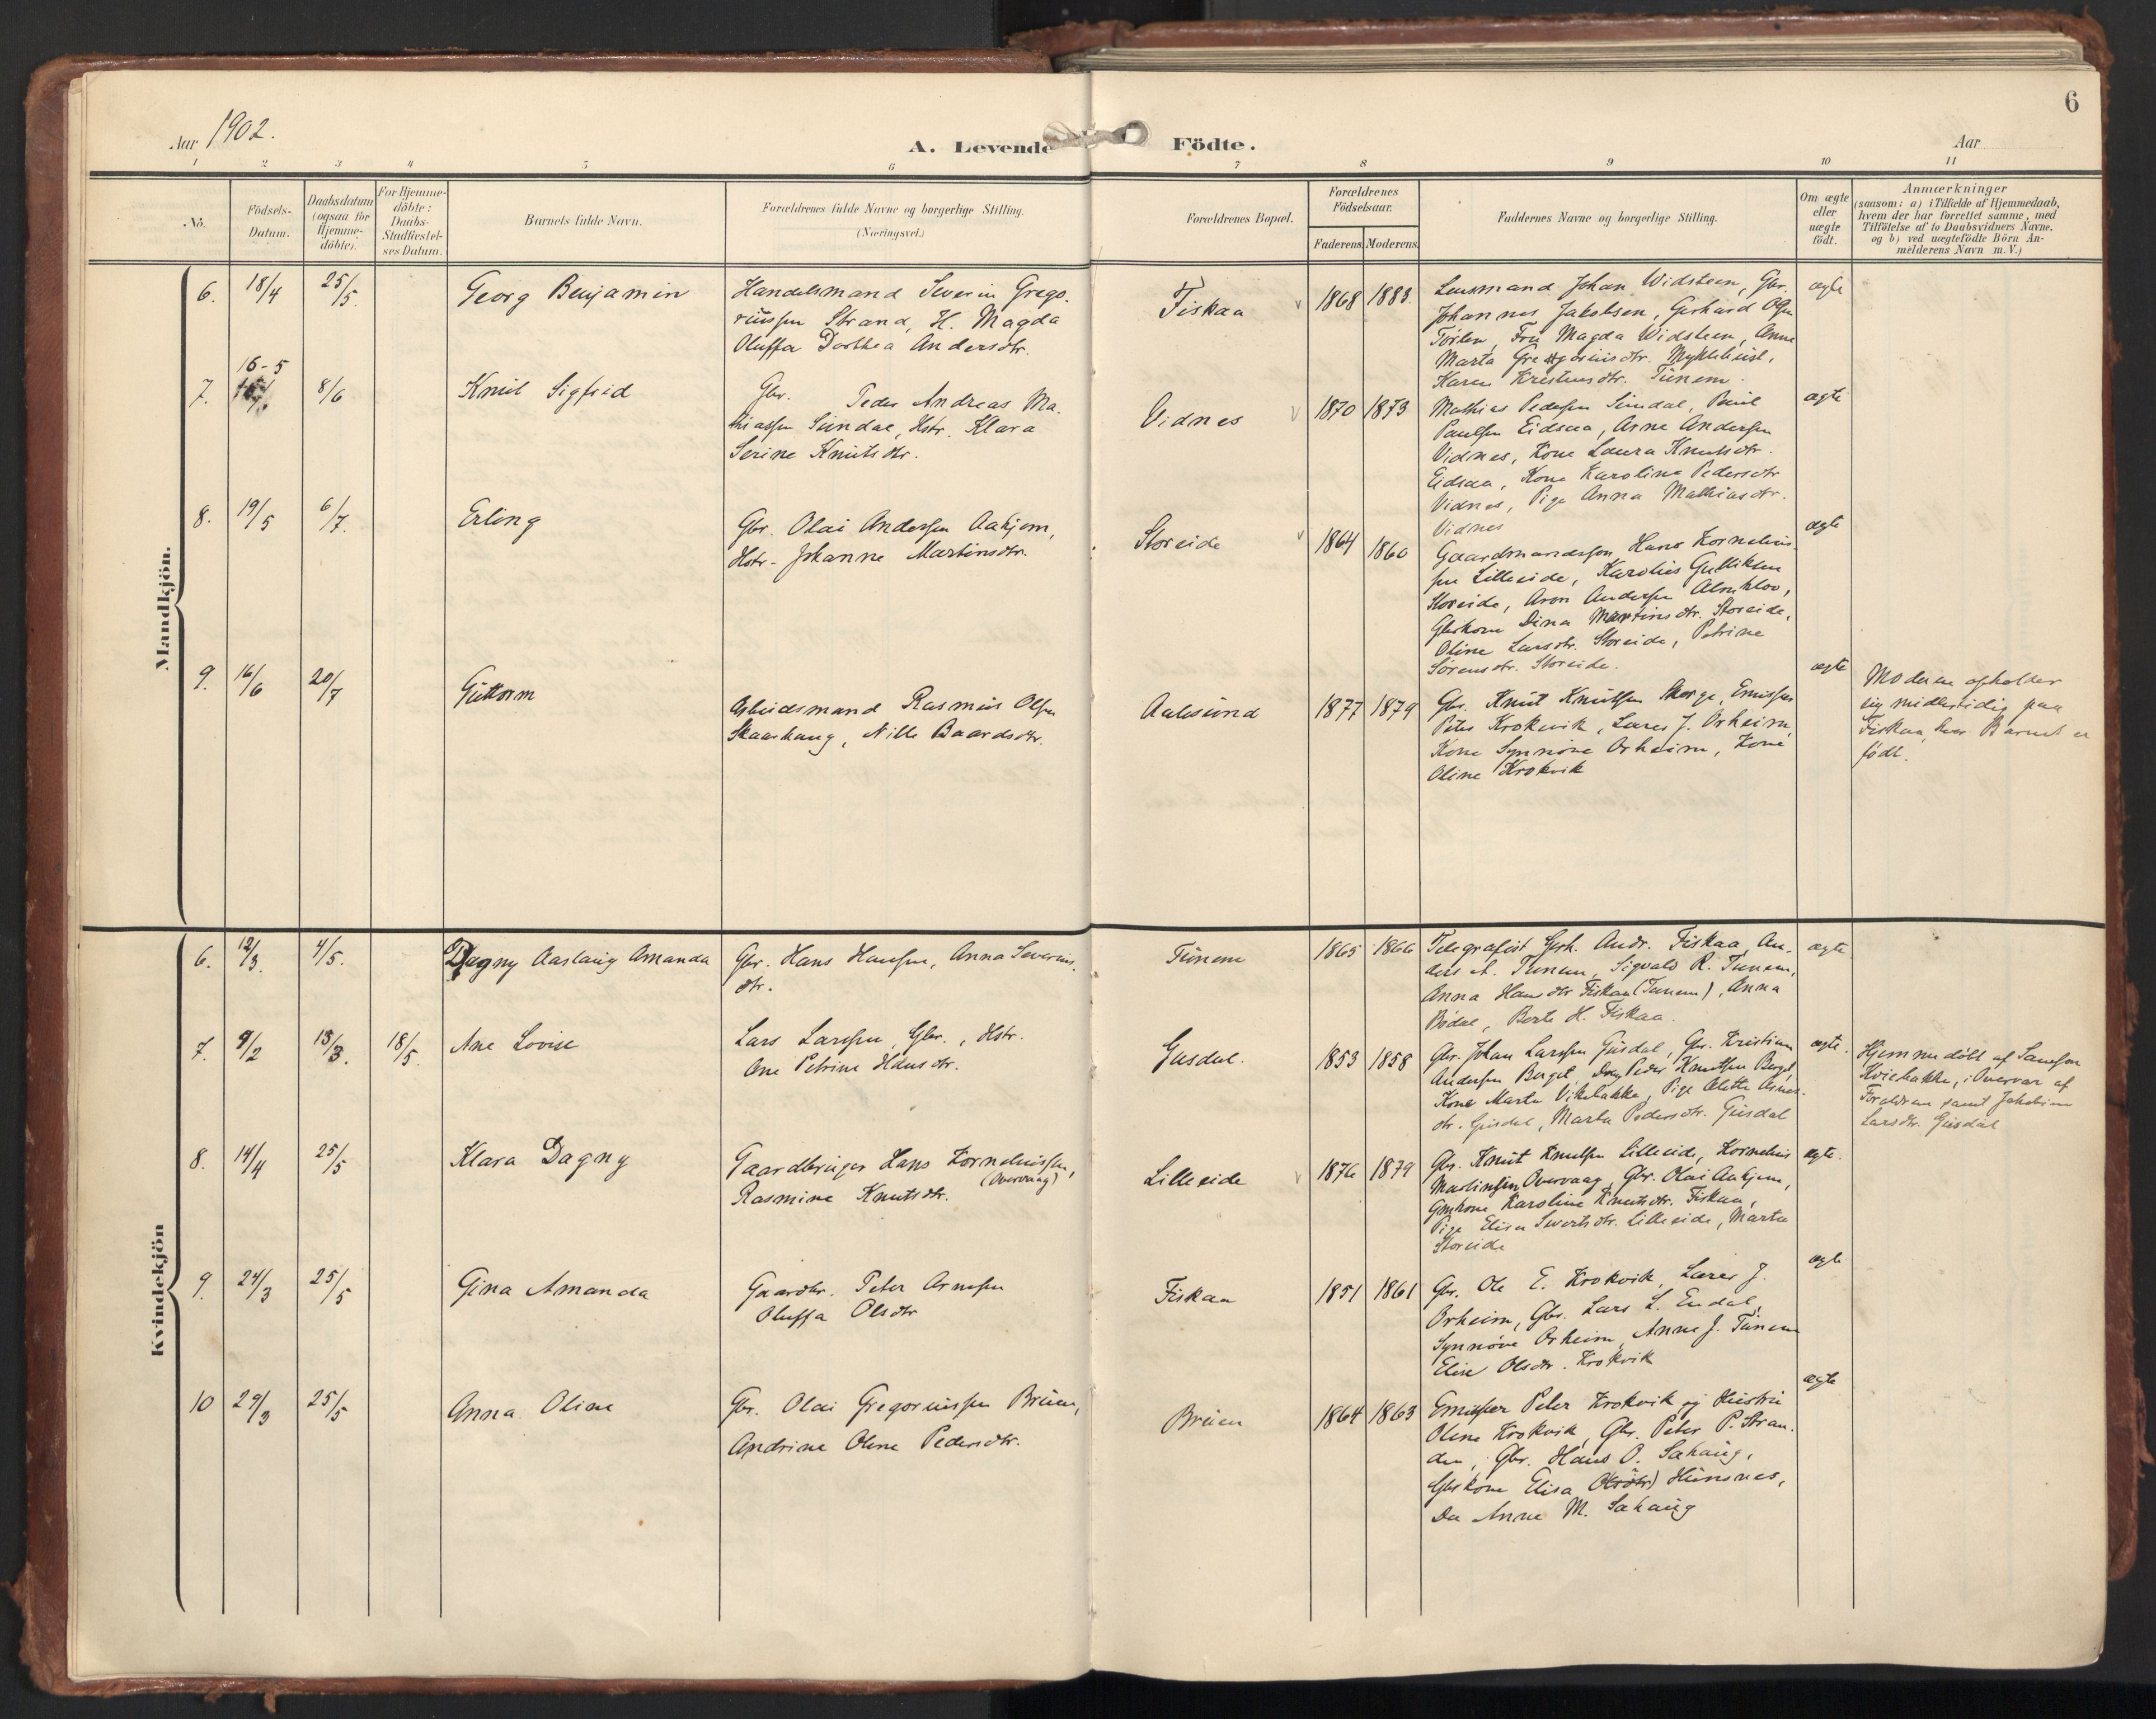 6
Aar 1902.
A. Levende Födte.
Aar
1 2 3 4 5 6 7 8 9 10 11
No.
Födsels-
Datum.
Daabsdatum
(ogsaa for
Hjemme-
döbte).
For Hjemme-
döbte:
Daabs-
Stadfæstel-
ses Datum.
Barnets fulde Navn.
Forældrenes fulde Navne og borgerlige Stilling.
(Næringsvei.)
Forældrenes Bopæl.
Forældrenes
Födselsaar.
Faderens. Moderens.
Faddernes Navne og borgerlige Stilling.
Om ægte
eller
uægte
födt.
Anmærkninger
(saasom: a) i Tilfælde af Hjemmedaab,
hvem der har forrettet samme, med
Tilföielse af to Daabsvidners Navne,
og b) ved uægtefödte Börn An-
melderens Navn m. V.)
Mandkjön.
6. 18/4 25/5.
Georg Benjamin
Handelsmand Severin Grego-
riussen Strand, H. Magda
Oluffa Dorthea Andersdtr.
Fiskaa
1868 1883.
Lensmand Johan Widsteen, Gbr.
Johannes Jakobsen, Gerhard Olsen
Fru Magda Widsteen, Anne
Marta Gregoriusdtr. Myklebust,
Karen Kristensdtr. Tunem.
ægte
16-5
7. 8/6
Knut Sigfrid
Gbr. Peder Andreas Ma-
thiassen Sundal, Hstr. Klara
Serine Knutsdtr.
Vidnes
1870 1873
Mathias Pedersen Sundal, Paul
Paulsen Eidsaa, Arne Andersen
Vidnes, Kone Laura Knutsdtr.
Eidsaa, Kone Karoline Pedersdtr
Vidnes, Pige Anna Mathiasdtr.
Vidnes
ægte
8. 19/5 6/7.
Erling
Gbr. Olai Andersen Aahjem,
Hstr. Johanne Martinsdtr.
Storeide
1864 1860
Gaardmandssøn Hans Kornelius-
sen Lilleeide, Karolius Gulliksen
Storeide, Aron Andersen Almklov,
Gbrkone Dina Martinsdtr. Storeide,
Oline Larsdtr. Storeide, Petrine
Sørensdtr. Storeide.
ægte
9. 16/6 20/7
Guttorm
Arbeidsmand Rasmus Olsen
Skaarhaug, Nille Baardsdtr.
Aalesund
1877 1879
Gbr. Knut Knutsen Skorge, Emissær
Peter Krokvik, Lærer J. Orheim,
Kone Synnøve Orheim, Kone
Oline Krokvik
ægte
Moderen opholder
sig midlertidig paa
Fiskaa, hvor Barnet er
født.
Kvindekjön
6. 12/3. 4/5.
Dagny Aaslaug Amanda
Gbr. Hans Hansen, Anna Severins-
dtr.
Tunem
1865 1866
Telegrafist Gerh. Andr. Fiskaa, An-
ders A. Tunem, Sigvald R. Tunem,
Anna Hansdtr Fiskaa (Tunem), Anna
Bødal, Berte H. Fiskaa.
ægte
7. 9/2 13/3. 18/5.
Ane Lovise
Lars Larssen, Gbr., Hstr.
Ane Petrine Hansdtr.
Gusdal.
1853 1858
Gbr. Johan Larssen Gusdal, Gbr. Kristian
Andersen Berget, Peder Knutsen Berget,
Kone Marte Vikebakke, Pige Olette Arnes-
dtr. Gusdal, Marta Pedersdtr. Gusdal
ægte.
Hjemmedøbt af Samson
Kviebakke, i Overvær af
Forældrene samt Jakobine
Larsdtr. Gusdal
8. 14/4 25/5
Klara Dagny
Gaardbruger Hans Korneliussen,
(Overvaag)
Rasmine Knutsdtr.
Lilleeide
1876 1879
Gbr. Knut Knutsen Lilleeide, Kornelius
Martinsen Overvaag, Gbr. Olai Aahjem,
Gmkone Karoline Knutsdtr. Fiskaa,
Pige Elisa Sivertsdtr. Lilleeide, Marta
Storeide
ægte.
9. 24/3 25/5
Gina Amanda
Gaardbr. Peter Arnesen
Oluffa Olsdtr
Fiskaa
1851 1861
Gbr. Ole E. Krokvik, Lærer J.
Orheim, Gbr. Lars L. Endal,
Synnøve Orheim, Anne J. Tunem
Elise Olsdtr. Krokvik
ægte
10 29/3 25/5
Anna Oline
Gbr. Olai Gregoriussen Bruen,
Andrine Olene Pedersdtr.
Bruen
1864 1863
Emissær Peter Krokvik og Hustru
Oline Krokvik, Gbr. Peter P. Stran-
den, Gbr. Hans O. Sahaug,
Gbrkone Elisa Hunsnes,
Do Anne M. Sahaug
ægte